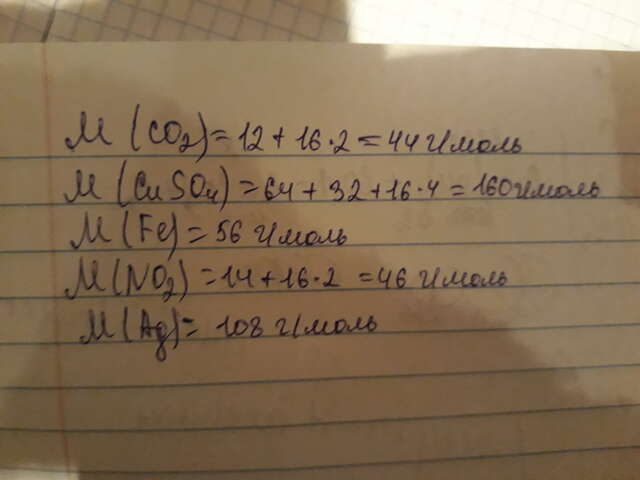 M (CO₂) = 12 + 16·2 = 44 г/моль
M (CuSO₄) = 64 + 32 + 16·4 = 160 г/моль
M (Fe) = 56 г/моль
M (NO₂) = 14 + 16·2 = 46 г/моль
M (Ag) = 108 г/моль